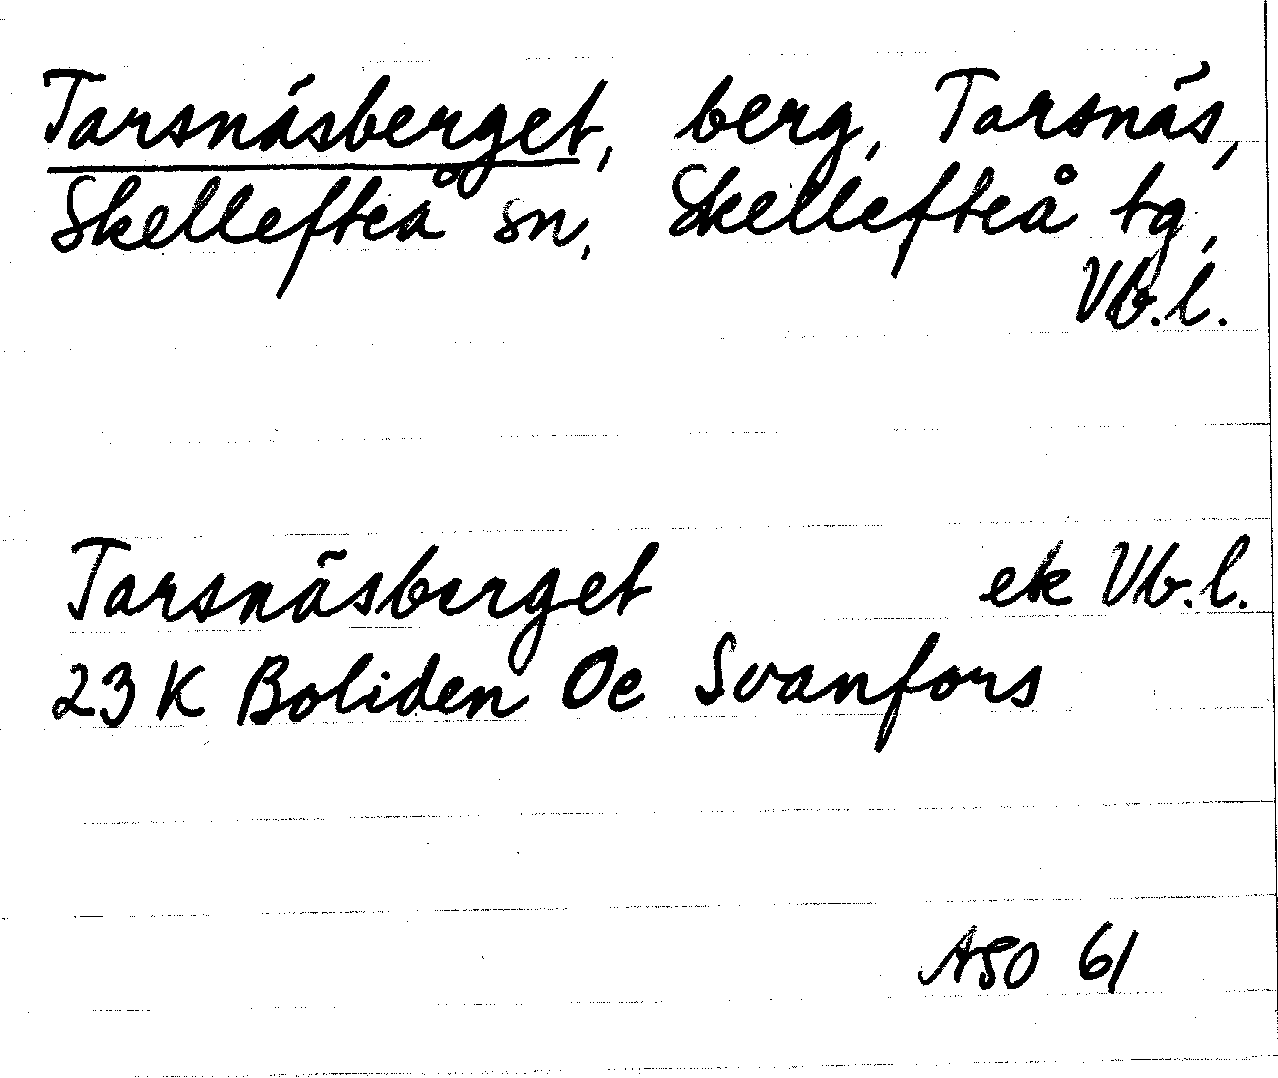 Tarsnäsberget, berg, Tarsnäs,
Skellefteå sn, Skellefteå tg,
Vb.l.
Tarsnäsberget ek Vb.l.
23 K Boliden Oe Svanfors
ASO 61